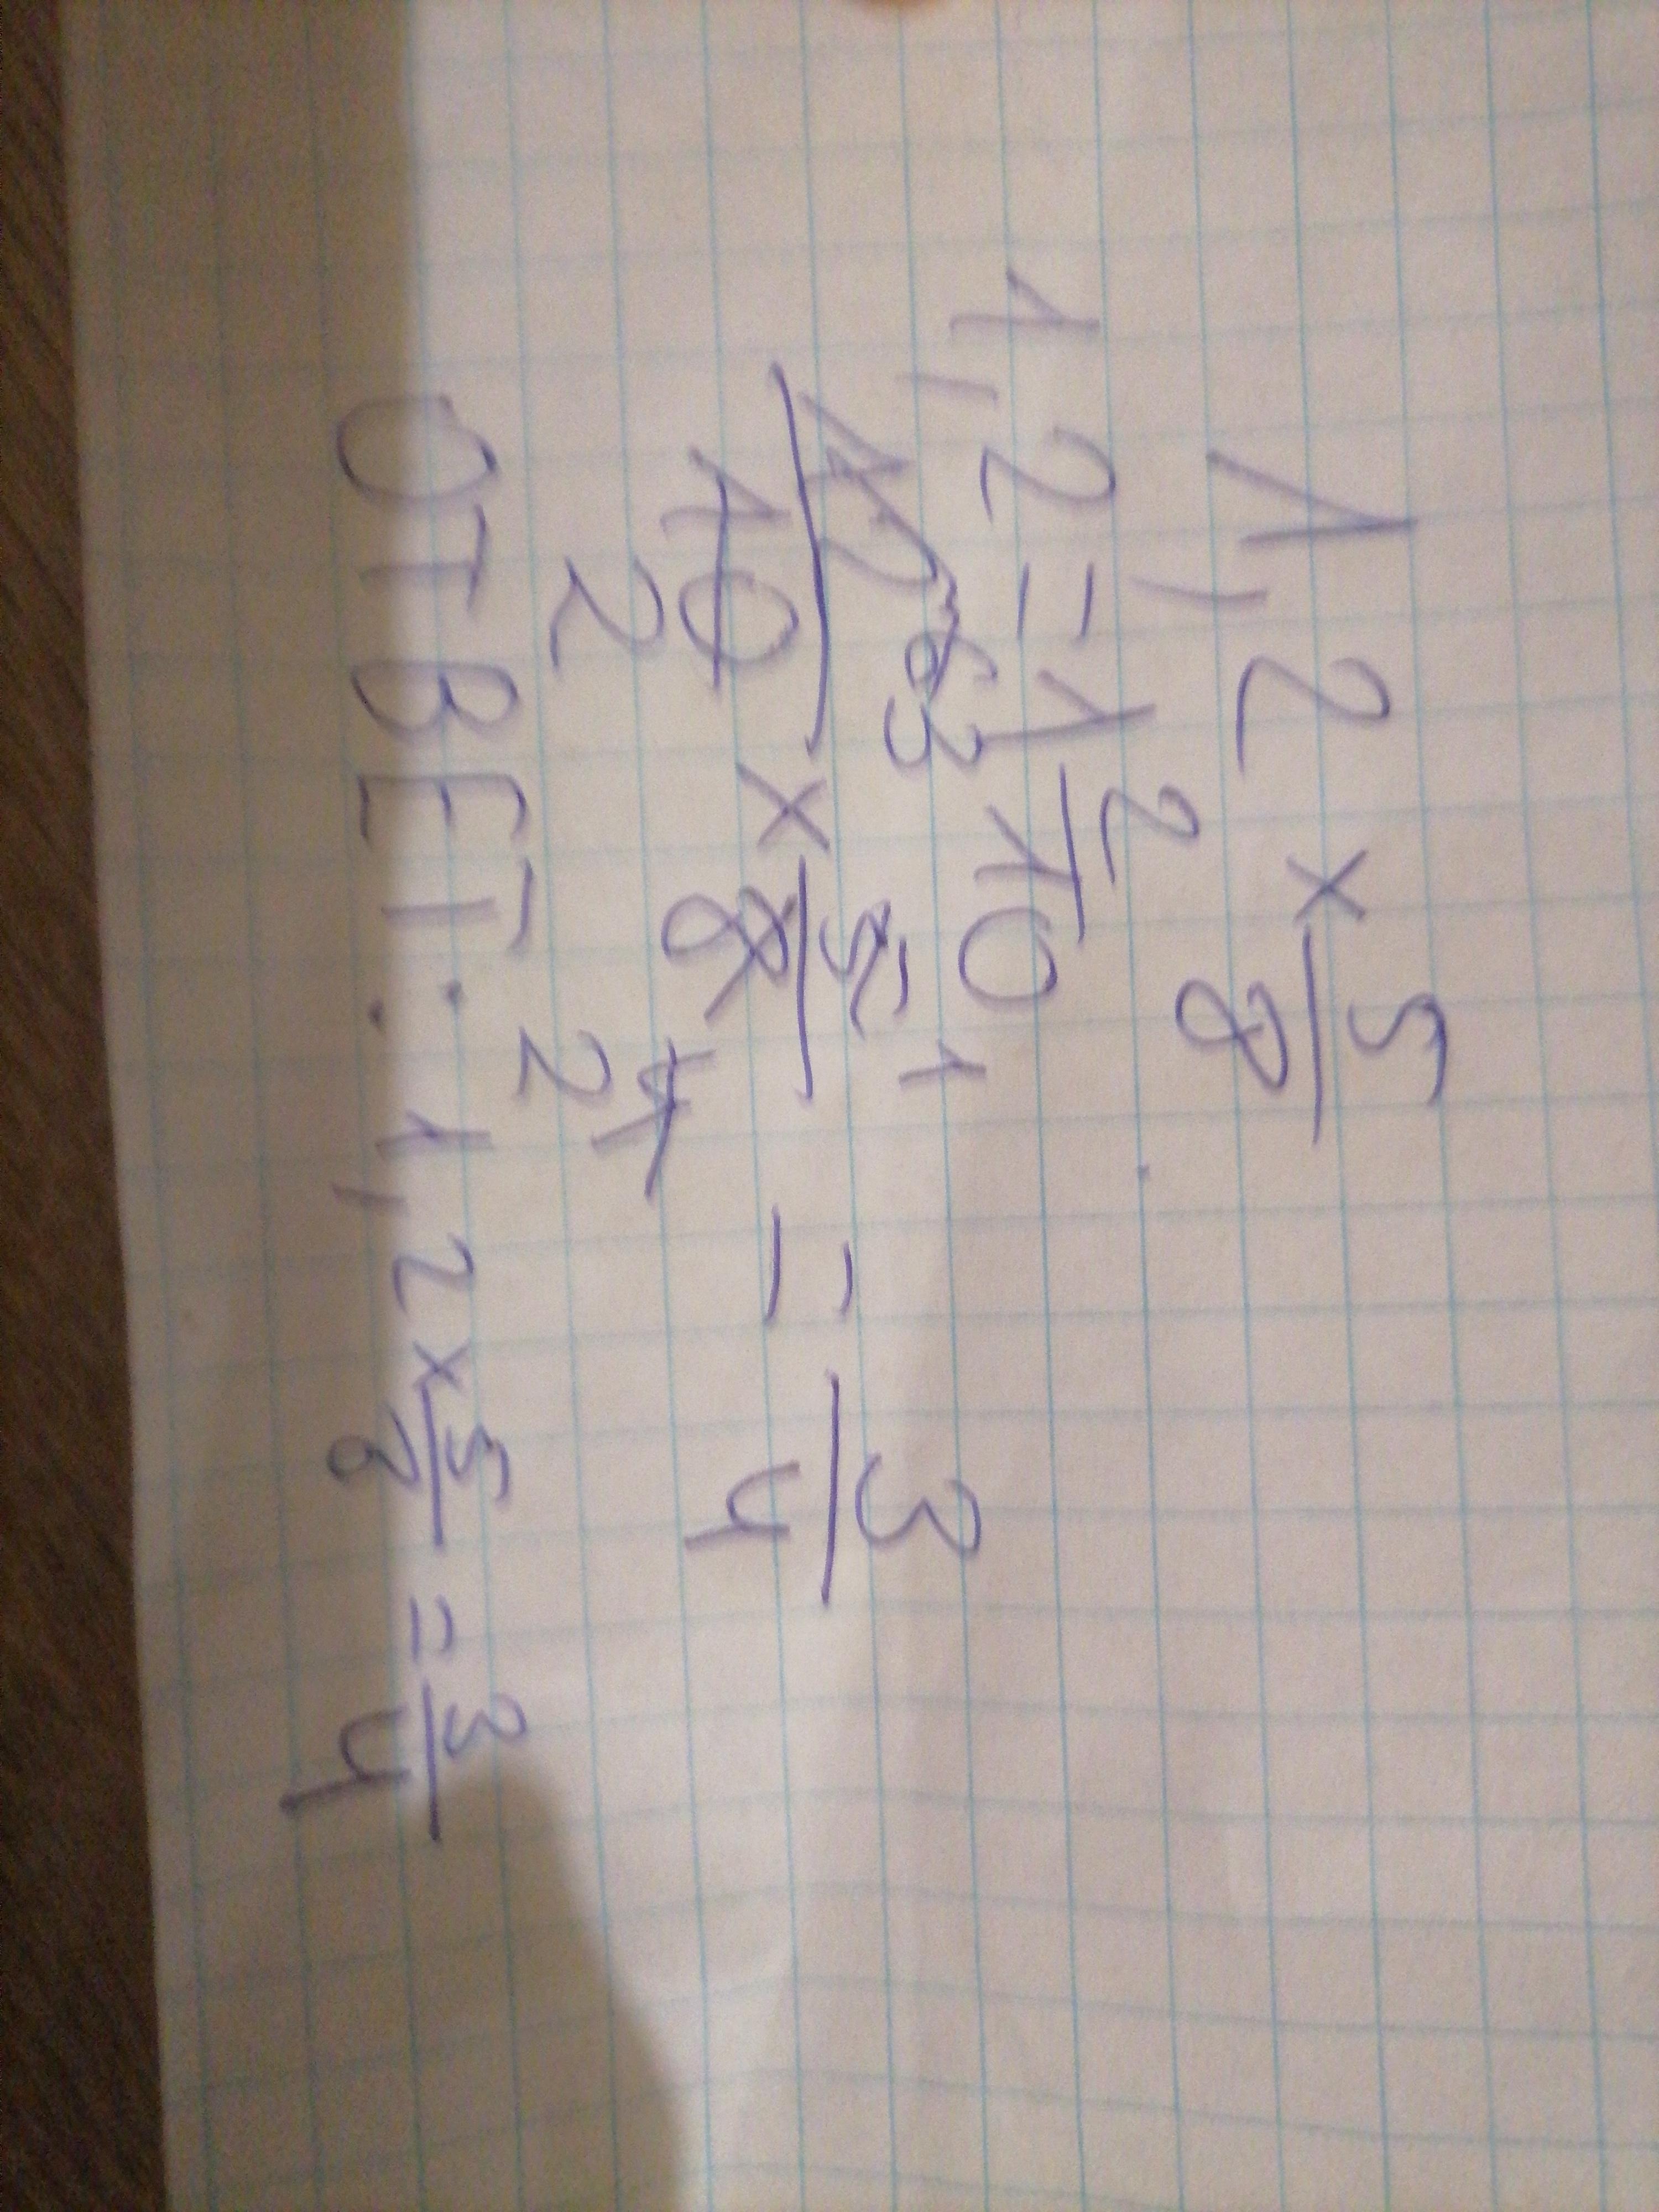 1,2 × 5/8
1,2 = 1 2/10
12 6 3/10 2 × 5 1/8 4 2 = 3/4
ОТВЕТ: 1,2 × 5/8 = 3/4